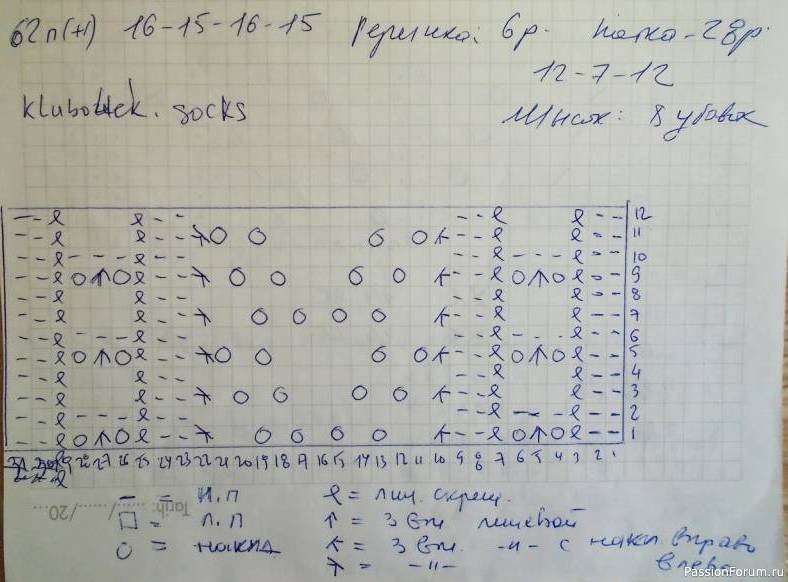 62п(+1) 16-15-16-15 Резинка: 6р. Пятка-28р.
12-7-12
klubo4ek.socks Мысок: 8 убавок
- - ℓ ℓ - - - - ℓ ℓ - - 12
- - ℓ ℓ - - O O O O - - ℓ ℓ - - 11
- - ℓ - - - ℓ - - - - ℓ - - - ℓ - - 10
- - ℓ O ↑ O ℓ - - O O O O - - ℓ O ↑ O ℓ - - 9
- - ℓ ℓ - - - - ℓ ℓ - - 8
- - ℓ ℓ - - O O O O - - ℓ ℓ - - 7
- - ℓ - - - ℓ - - - - ℓ - - - ℓ - - 6
- - ℓ O ↑ O ℓ - - O O O O - - ℓ O ↑ O ℓ - - 5
- - ℓ ℓ - - - - ℓ ℓ - - 4
- - ℓ ℓ - - O O O O - - ℓ ℓ - - 3
- - ℓ - - - ℓ - - - - ℓ - - - ℓ - - 2
- - ℓ O ↑ O ℓ - - O O O O - - ℓ O ↑ O ℓ - - 1
28 27 26 25 24 23 22 21 20 19 18 17 16 15 14 13 12 11 10 9 8 7 6 5 4 3 2 1
- = И.П ℓ = лиц. скрещ.
□ = Л.П ↑ = 3 вм. лицевой
O = накид = 3 вм. -"- с накл. вправо
= -"- влево
Tarih: ...../...../20...
PassionForum.ru